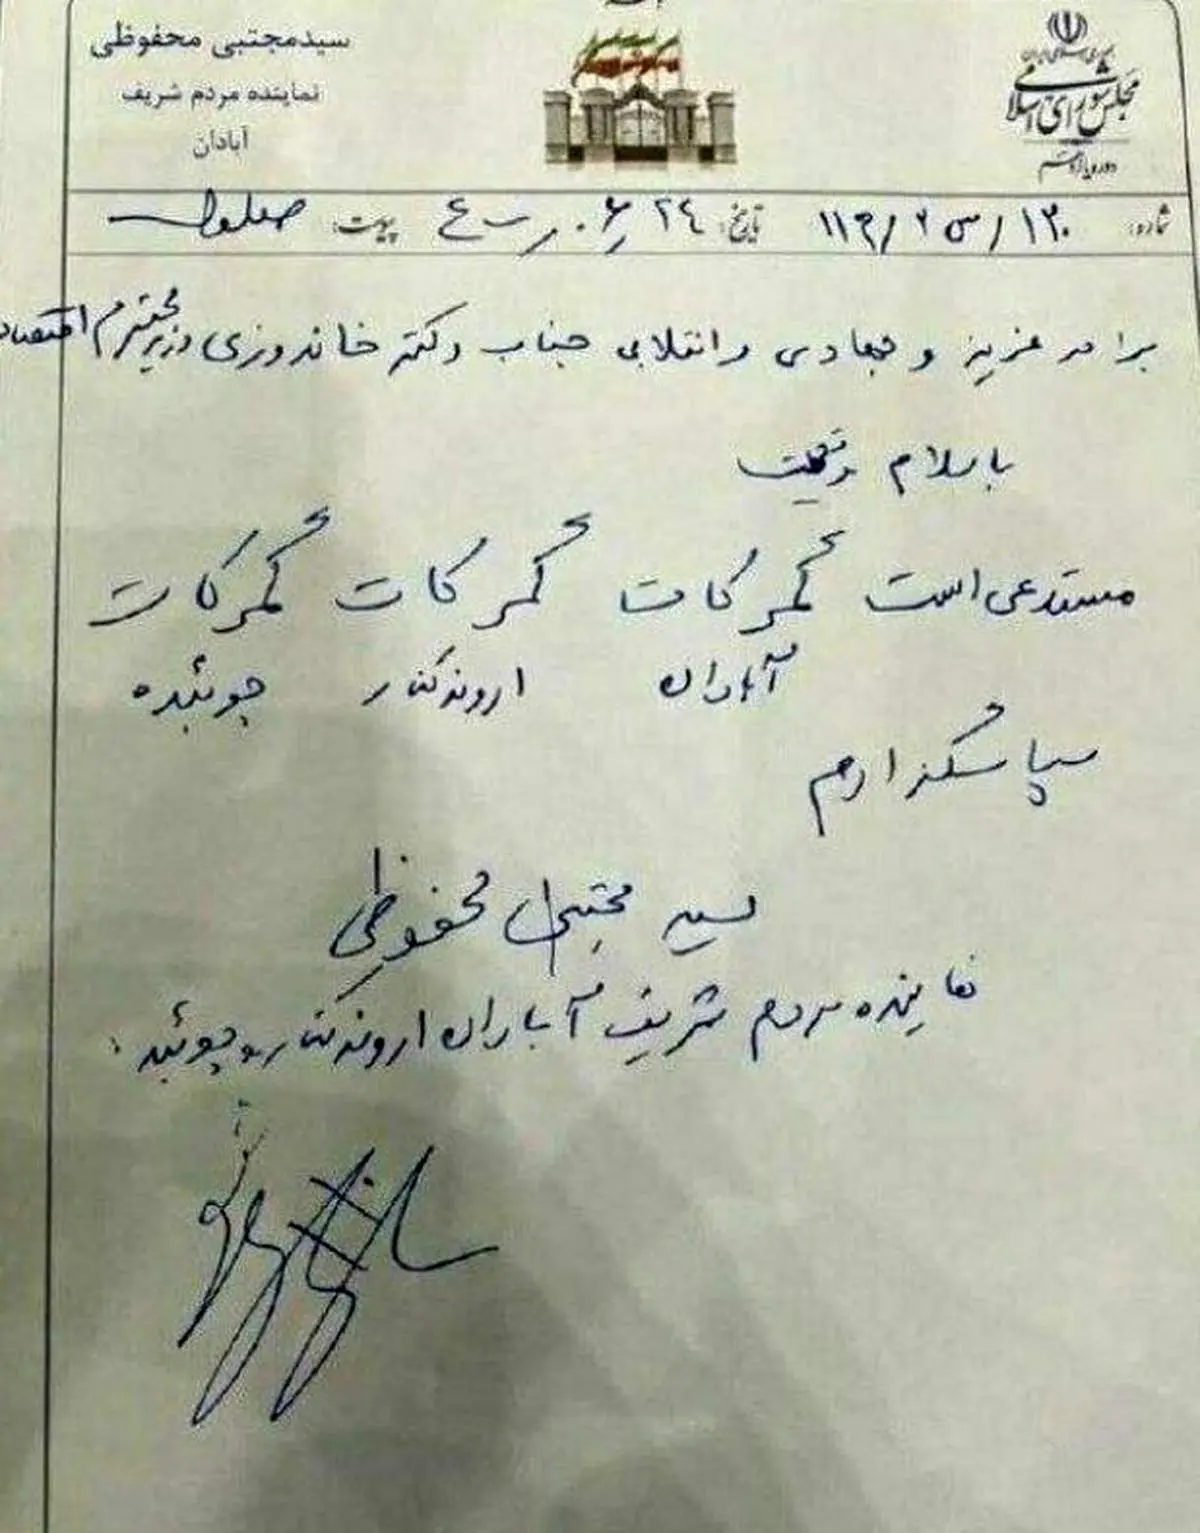 جمهوری اسلامی ایران
مجلس شورای اسلامی
دوره یازدهم
سیدمجتبی محفوظی
نماینده مردم شریف
آبادان
شماره: ۱۳۰/س۲/۱۱۹
تاریخ: ۲۴
پیوست:
برادر عزیز و جهادی و انقلابی جناب دکتر خاندوزی وزیر محترم اقتصاد
باسلام و تحیت
مستدعی است گمرکات گمرکات گمرکات
آبادان اروندکنار چوئبده
سپاسگزارم
سید مجتبی محفوظی
نماینده مردم شریف آبادان اروندکنار و چوئبده